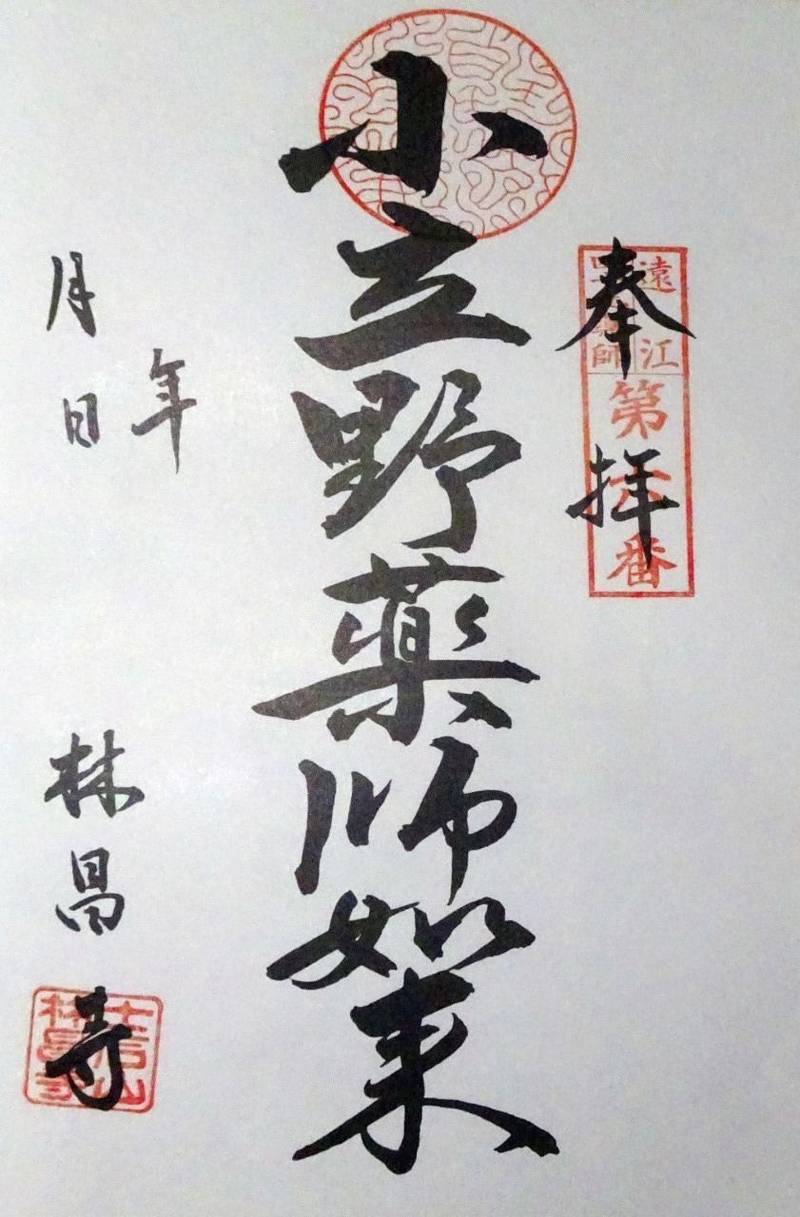 奉拝
遠江
師
第
番
小立野薬师如来
年
月日
林昌寺